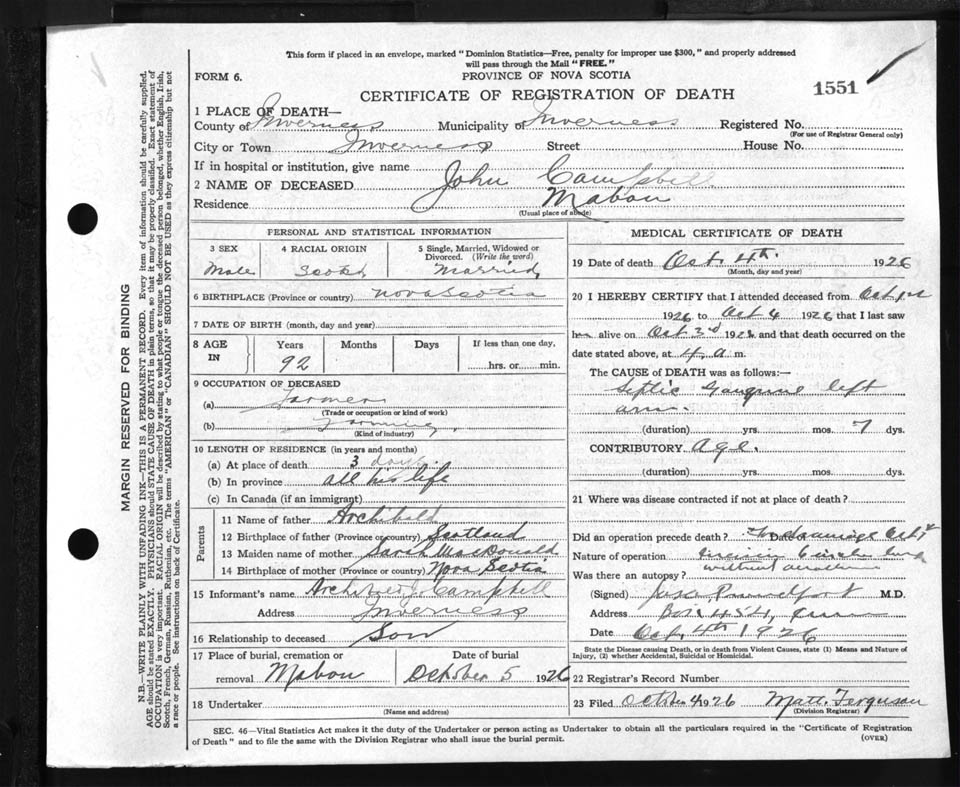 This form if placed in an envelope, marked "Dominion Statistics—Free, penalty for improper use $300," and properly addressed
will pass through the Mail "FREE."
FORM 6.
PROVINCE OF NOVA SCOTIA
CERTIFICATE OF REGISTRATION OF DEATH
1551
1 PLACE OF DEATH—
County of Inverness Municipality of Inverness Registered No.
(For use of Registrar General only)
City or Town Inverness Street House No.
If in hospital or institution, give name
2 NAME OF DECEASED John Campbell
Residence Mabou
(Usual place of abode)
PERSONAL AND STATISTICAL INFORMATION
3 SEX 4 RACIAL ORIGIN 5 Single, Married, Widowed or
Divorced. (Write the word)
Male Scotch Married
6 BIRTHPLACE (Province or country) Nova Scotia
7 DATE OF BIRTH (month, day and year)
8 AGE IN Years Months Days If less than one day,
92 hrs. or min.
9 OCCUPATION OF DECEASED
(a) Farmer
(Trade or occupation or kind of work)
(b) Farming
(Kind of industry)
10 LENGTH OF RESIDENCE (in years and months)
(a) At place of death 3 days
(b) In province all his life
(c) In Canada (if an immigrant)
Parents
11 Name of father Archibald
12 Birthplace of father (Province or country) Scotland
13 Maiden name of mother Sarah MacDonald
14 Birthplace of mother (Province or country) Nova Scotia
15 Informant's name Archibald J. Campbell
Address Inverness
16 Relationship to deceased Son
17 Place of burial, cremation or Date of burial
removal Mabou October 5 1926
18 Undertaker
(Name and address)
MEDICAL CERTIFICATE OF DEATH
19 Date of death Oct. 4th. 1926
(Month, day and year)
20 I HEREBY CERTIFY that I attended deceased from Oct 1st
1926 to Oct 4 1926 that I last saw
him alive on Oct 3rd 1926 and that death occurred on
date stated above, at 4 a m.
The CAUSE of DEATH was as follows:—
Septic Gangrene left
arm.
(duration) yrs. mos. 7 dys.
CONTRIBUTORY Age.
(duration) yrs. mos. dys.
21 Where was disease contracted if not at place of death?
Did an operation precede death? Date Oct 1st
Nature of operation
without
Was there an autopsy?
(Signed) M.D.
Address Box 454,
Date Oct. 4th 1926
State the Disease causing Death, or in death from Violent Causes, state (1) Means and Nature of
Injury, (2) whether Accidental, Suicidal or Homicidal.
22 Registrar's Record Number
23 Filed October 4 1926 Matt. Ferguson
(Division Registrar)
SEC. 46—Vital Statistics Act makes it the duty of the Undertaker or person acting as Undertaker to obtain all the particulars required in the "Certificate of Registration
of Death" and to file the same with the Division Registrar who shall issue the burial permit.
(OVER)
MARGIN RESERVED FOR BINDING
N.B.—WRITE PLAINLY WITH UNFADING INK—THIS IS A PERMANENT RECORD. Every item of information should be carefully supplied.
AGE should be stated EXACTLY. PHYSICIANS should STATE CAUSE OF DEATH in plain terms, so that it may be properly classified. Exact statement of
OCCUPATION is very important. RACIAL ORIGIN will be described by stating to what people or tongue the deceased person belonged, whether English, Irish,
Scotch, French, German, Russian, Ruthenian, etc. The terms "AMERICAN" or "CANADIAN" SHOULD NOT BE USED as they express citizenship but not
a race or people. See instructions on back of Certificate.